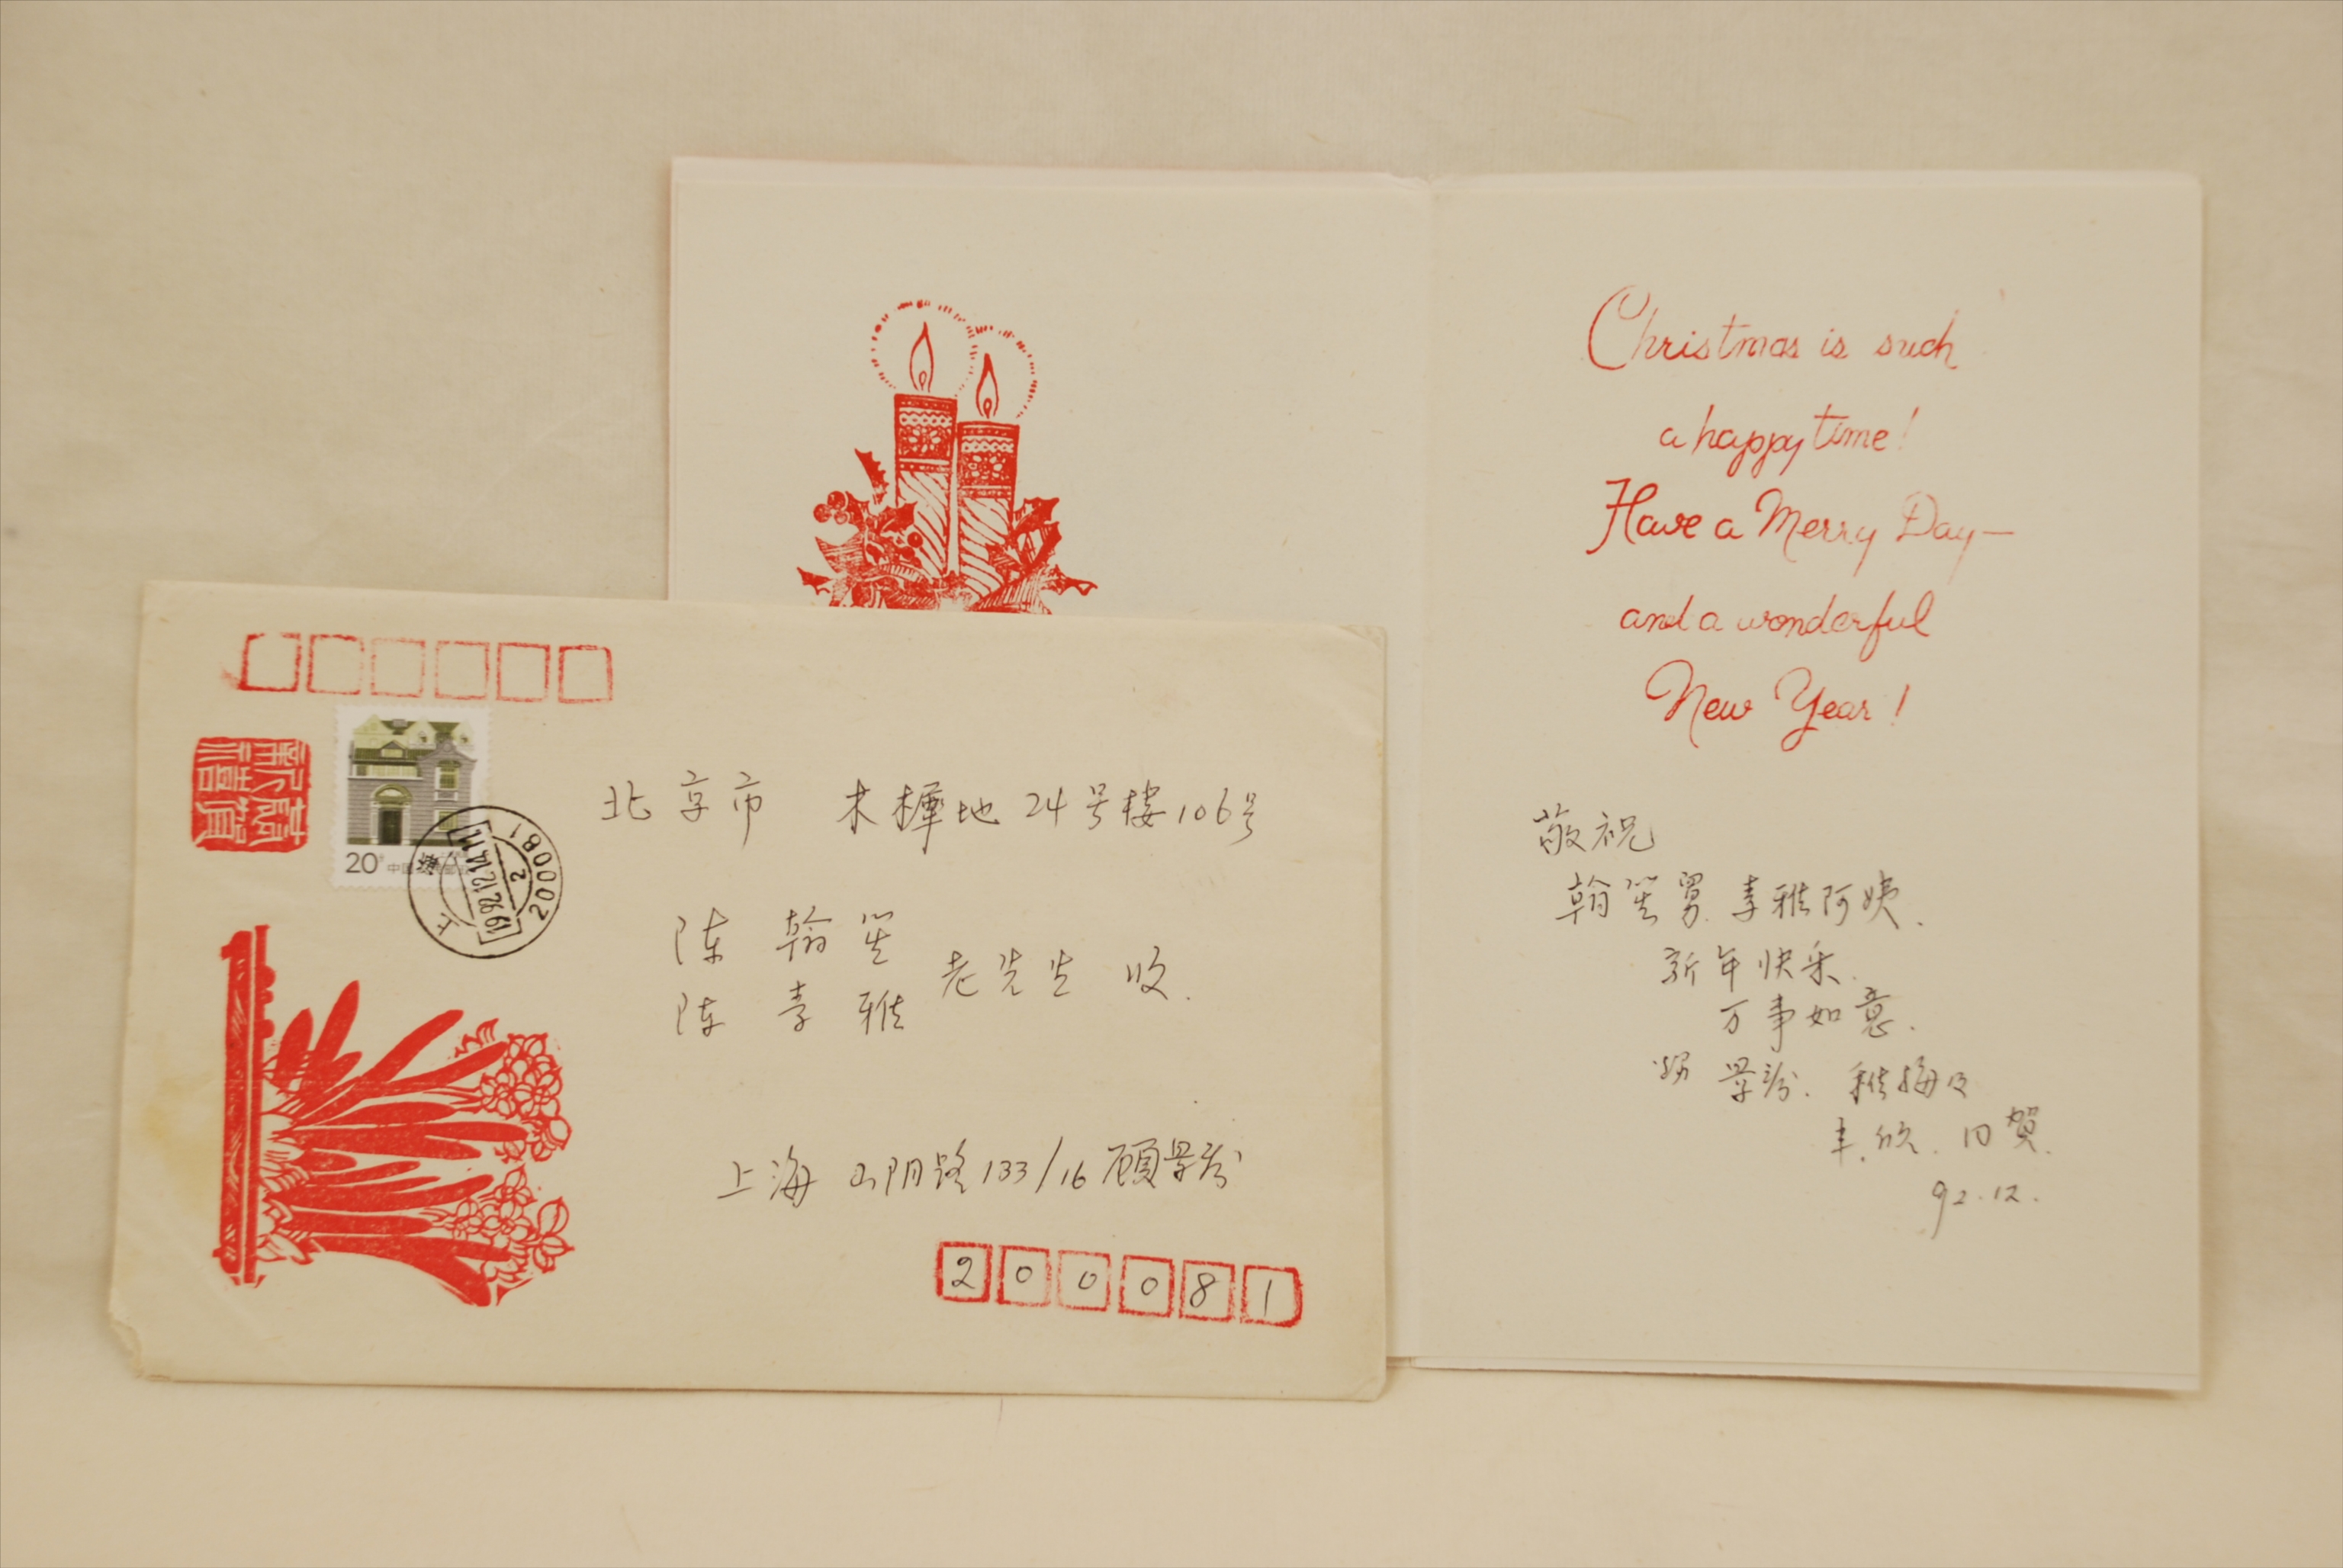 20分
中国
上海
1992.12.14.11
2
200081
北京市 木樨地24号楼106号
陈 翰笙
陈 李雅
老先生 收.
上海 山阴路133/16 顾景芬
200081
Christmas is such
a happy time!
Have a Merry Day—
and a wonderful
New Year!
敬祝
翰笙舅. 李雅阿姨.
新年快乐.
万事如意.
景芬.
同贺.
92.12.